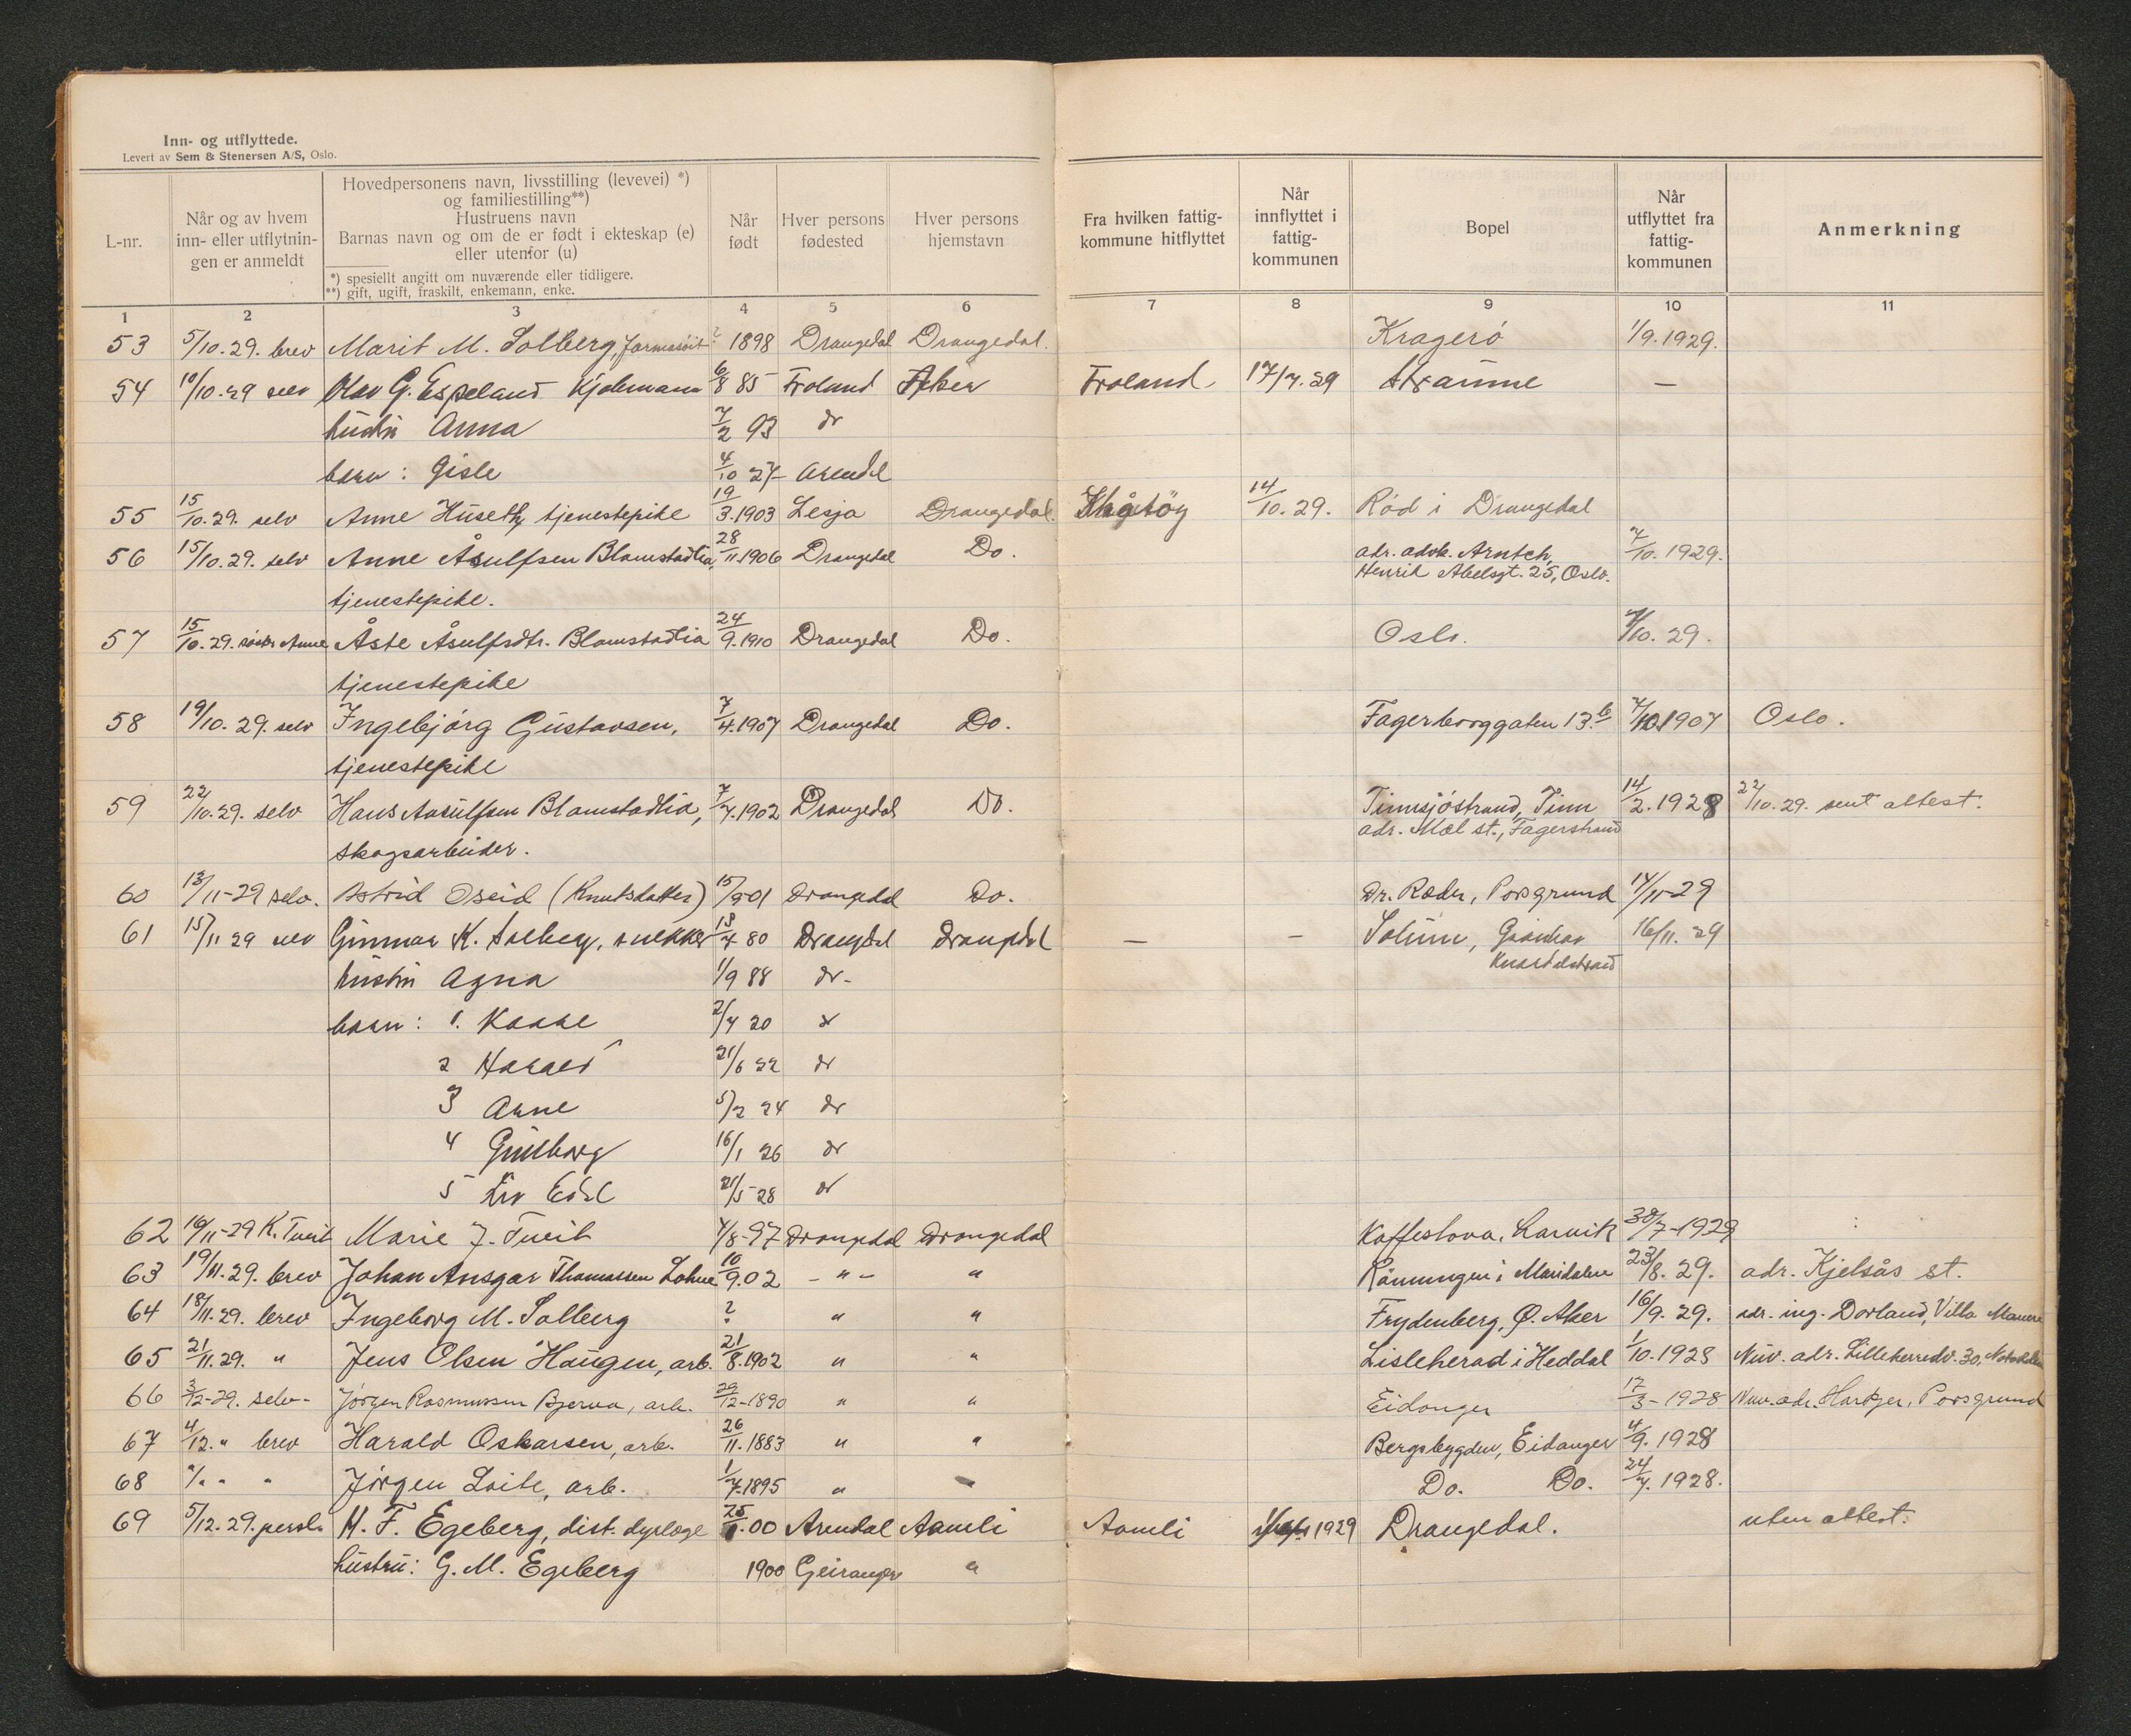 Inn- og utflyttede.
Levert av Sem & Stenersen A/S, Oslo.
L-nr.
Når og av hvem inn- eller utflytnin-gen er anmeldt
Hovedpersonens navn, livsstilling (levevei) *)
og familiestilling**)
Hustruens navn
Barnas navn og om de er født i ekteskap (e)
eller utenfor (u)
*) spesiellt angitt om nuværende eller tidligere.
**) gift, ugift, fraskilt, enkemann, enke.
Når født
Hver persons fødested
Hver persons hjemstavn
Fra hvilken fattig-kommune hitflyttet
Når innflyttet i fattig-kommunen
Bopel
Når utflyttet fra fattig-kommunen
Anmerkning
1 2 3 4 5 6 7 8 9 10 11
53 5/10.29. brev Marit M. Solberg, ? 1898 Drangedal Drangedal. Kragerö 1/9.1929.
54 10/10.29 selv Olav G. Espeland 6/8 85 Froland Aker Froland 17/7.29 Straume —
hustru Anna 7/2 93 do
barn: Gisle 4/10 27 Arendal
55 15/10.29. selv Anne Huseth, tjenestepike 19/3.1903 Lesja Drangedal. Skåtöy 14/10.29. Röd i Drangedal
56 15/10.29. selv Anne Åsulfsen Blomstadlia, 28/11.1906 Drangedal Do. adr. advk. Arntch, 7/10.1929.
Henrik Abelsgt. 25, Oslo.
tjenestepike.
57 15/10.29. Anne Åste Åsulfsdtr. Blomstadlia 24/9.1910 Drangedal Do. Oslo. 7/10.29.
tjenestepike
58 19/10.29. selv Ingebjörg Gustavsen, 7/4.1907 Drangedal Do. Fagerborggaten 13.b 7/10.1907 Oslo.
tjenestepike
59 22/10.29. selv Hans Aasulfsen Blomstadlia, 7/7.1902 Drangedal Do. Tinnsjöstrand, Tinn 14/2.1928 22/10.29. sent attest.
adr. Mæl st., Fagerstrand
skogsarbeider.
60 13/11-29 selv. Astrid Oseid (Knutsdatter) 15/9-01 Drangedal Do. Dr. Roder, Porsgrund 14/11-29
61 15/11 29 selv Gunnar K. Solberg, snekker 18/4 80 Drangedal Drangedal — — Solum, 16/11.29
hustru Agna 1/9 88 do
barn: 1. Kaare 2/4 20 do
2 Harald 21/6 22 do
3 Arne 5/2 24 do
4 Gunborg 16/1 26 do
5 Liv Edel 21/5 28 do
62 16/11-29 K. Tveit Marie J. Tveit 4/8-97 Drangedal Drangedal Kaffestova, Larvik 30/7-1929
63 19/11.29. brev Johan Ansgar Thomassen Lohne 10/9.02 - " - " Rönningen i Maridalen 23/8.29. adr. Kjelsås st.
64 18/11.29. brev Ingeborg M. Solberg ? " " Frydenberg, Ö. Aker 16/9.29. adr. ing. Dorland, Villa
65 21/11.29. " Jens Olsen Haugen, arb. 21/8.1902 " " Lisleherad i Heddal 1/10.1928 Nuv. adr. Lilleherredv. 30,
66 3/12-29. selv- Jörgen Rasmussen Bjerva, arb. 29/12-1890 " " Eidanger 17/3-1928 Nuv. adr. Porsgrund
67 4/12. " brev Harald Oskarsen, arb. 26/11.1883 " " Bergsbygden, Eidanger 4/9.1928
68 "/" " " Jörgen Loite, arb. 1/7.1895 " " Do. Do. 24/7.1928.
69 5/12.29. persl. H. F. Egeberg, dist. dyrlæge 00 Arendal Aamli Aamli 1929 Drangedal. uten attest.
hustru: G. M. Egeberg 1900 Geiranger "